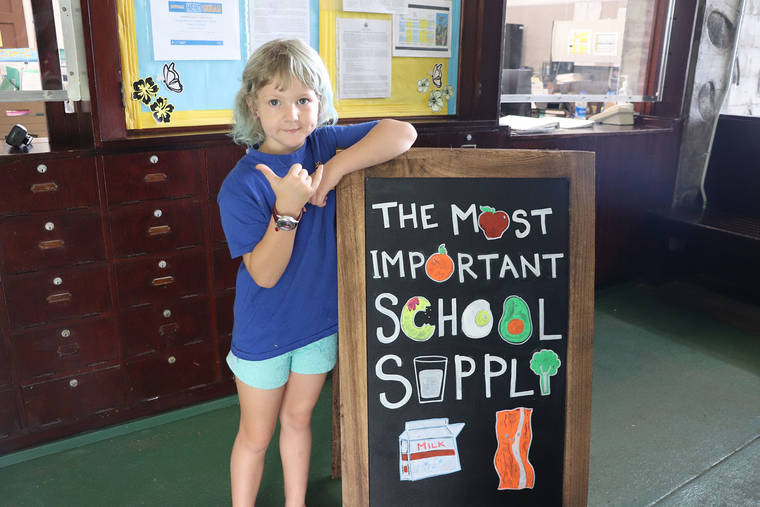 THE MOST
IMPORTANT
SCHOOL
SUPPLY
MILK